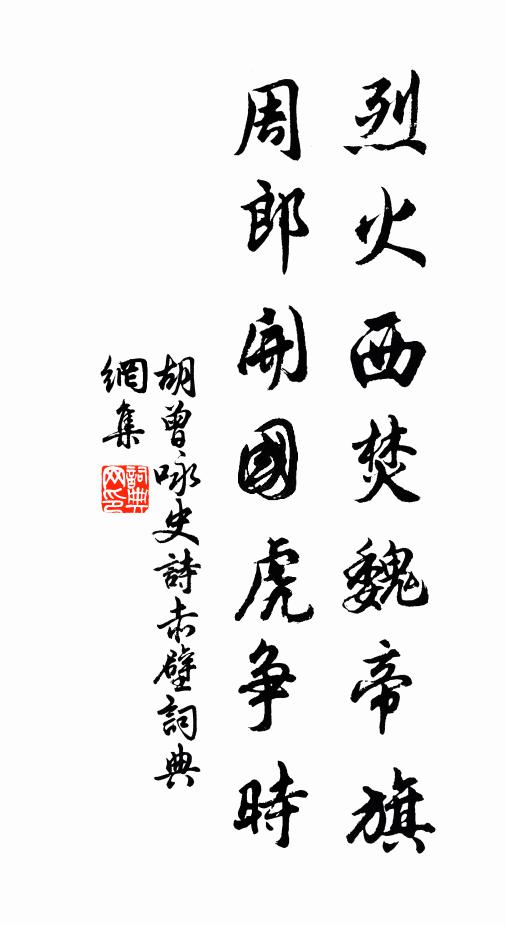 烈火西焚魏帝旗
周郎開國虎争時
胡曾咏史詩赤壁詞典
網集
詞典
网印